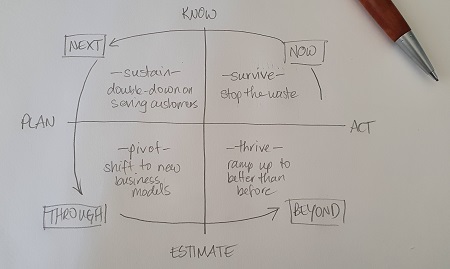 KNOW
NEXT
NOW
-sustain-
double-down on
saving customers
-survive-
stop the waste
PLAN
ACT
-pivot-
shift to new
business
models
-thrive-
ramp up to
better than
before
THROUGH
BEYOND
ESTIMATE